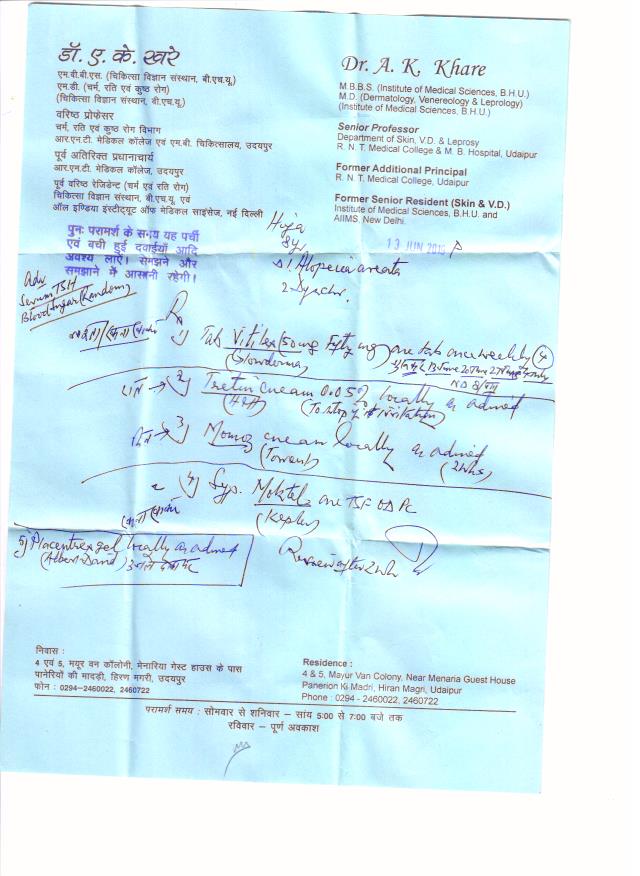 डॉ. ए. के. खरे
एम.बी.बी.एस. (चिकित्सा विज्ञान संस्थान, बी.एच.यू.)
एम.डी. (चर्म, रति एवं कुष्ठ रोग)
(चिकित्सा विज्ञान संस्थान, बी.एच.यू.)
वरिष्ठ प्रोफेसर
चर्म, रति एवं कुष्ठ रोग विभाग
आर.एन.टी. मेडिकल कॉलेज एवं एम.बी. चिकित्सालय, उदयपुर
पूर्व अतिरिक्त प्रधानाचार्य
आर.एन.टी. मेडिकल कॉलेज, उदयपुर
पूर्व वरिष्ठ रेजिडेन्ट (चर्म एवं रति रोग)
चिकित्सा विज्ञान संस्थान, बी.एच.यू. एवं
ऑल इण्डिया इंस्टीट्यूट ऑफ मेडिकल साइंसेज, नई दिल्ली
Dr. A. K. Khare
M.B.B.S. (Institute of Medical Sciences, B.H.U.)
M.D. (Dermatology, Venereology & Leprology)
(Institute of Medical Sciences, B.H.U.)
Senior Professor
Department of Skin, V.D. & Leprosy
R. N. T. Medical College & M. B. Hospital, Udaipur
Former Additional Principal
R. N. T. Medical College, Udaipur
Former Senior Resident (Skin & V.D.)
Institute of Medical Sciences, B.H.U. and
AIIMS, New Delhi.
पुनः परामर्श के समय यह पर्ची
एवं बची हुई दवाईयाँ आदि
अवश्य लाएं। समझने और
समझाने में आसानी रहेगी।
13 JUN
Alopecia areata
Adv
Serum TSH
Blood Sugar (Random)
1) Tab Vitilex (50mg Fifty mg) one tab once weekly
2) Tretin cream 0.05% locally as advised
(To stop if irritation)
3) Momoz cream locally as advised
(Torrent) (2wks)
4) Syp. one TSF OD PC
5) Placentrex gel locally as advised
(Albert David)
Review after 2wk
निवास :
4 एवं 5, मयूर वन कॉलोनी, मेनारिया गेस्ट हाउस के पास
पानेरियों की मादड़ी, हिरण मगरी, उदयपुर
फोन : 0294-2460022, 2460722
Residence :
4 & 5, Mayur Van Colony, Near Menaria Guest House
Panerion Ki Madri, Hiran Magri, Udaipur
Phone : 0294 - 2460022, 2460722
परामर्श समय : सोमवार से शनिवार – सांय 5:00 से 7:00 बजे तक
रविवार – पूर्ण अवकाश